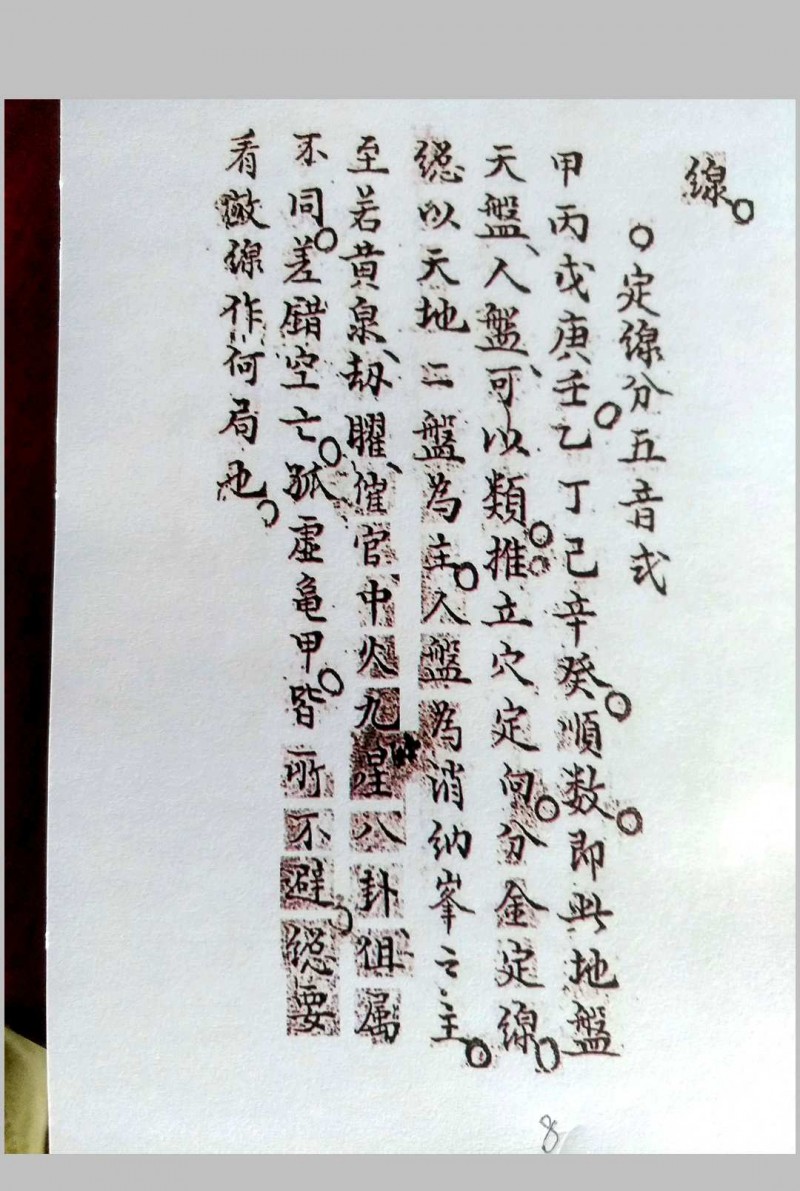 線。
○定線分五音式
甲丙戊庚壬。乙丁己辛癸。順数。即此地盤
天盤、人盤、可以類推。立穴定向。分金定線。
縂以天地二盤為主。人盤為消納峯之主。
至若黄泉、刼曜、催官中火九星八卦俱属
不同。差錯空亡。孤虛龜甲。皆所不避。縂要
看做線作何局也。
8